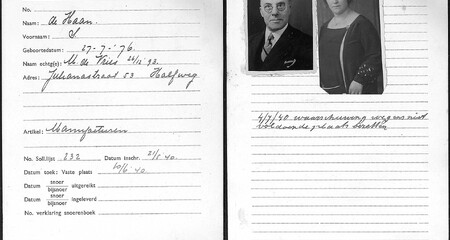 No.
Naam: de Haan.
Voornaam: S
Geboortedatum: 27-7-'76.
Naam echtg(e): M. de Vries 24/12 '93.
Adres: Julianastraat 53 Halfweg
Artikel: Manufacturen
No. Soll.lijst 232 Datum inschr. 21/5 40.
Datum toek: Vaste plaats 20/6 '40
Datum snoer bijsnoer uitgereikt
Datum snoer bijsnoer ingeleverd
No. verklaring snoerenboek
4/7/40 waarschuwing wegens niet
voldoende plaats bezetten